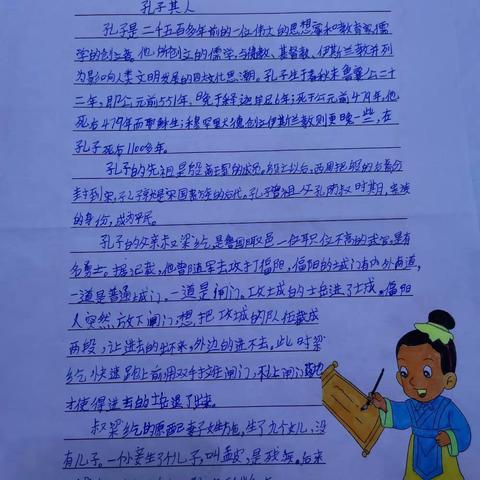 孔子其人
孔子是二千五百多年前的一位伟大的思想家和教育家,儒
学的创立者。他所创立的儒学,与佛教、基督教、伊斯兰教并列
为影响人类文明发展的四大文化思潮。孔子生于春秋末鲁襄公二十
二年,即公元前551年,晚于释迦牟尼6年;死于公元前479年,他
死后479年而耶稣生;穆罕默德创立伊斯兰教则更晚一些,在
孔子死后1100多年。
孔子的先祖是殷商王室的成员。殷亡以后,西周把殷的后裔分
封到宋,孔子就是宋国贵族的后代。孔子曾祖父孔防叔时期,
的身份,成为平民。
孔子的父亲叔梁纥,是鲁国陬邑一位职位不高的武官,是有
名勇士。据记载,他曾随军去攻打偪阳,偪阳的城门有内外两道,
一道是普通城门。一道是闸门。攻城的士兵进了城。偪阳
人突然放下闸门,想把攻城的队伍截成
两段,让进去的出不来,外边的进不去。此时梁
纥快速跑上前用双手抬闸门,
才使得进去的士兵退了出来。
叔梁纥的原配妻子姓施,生了九个女儿,没
有儿子。一小妾生了个儿子,叫孟皮,是残疾。后来